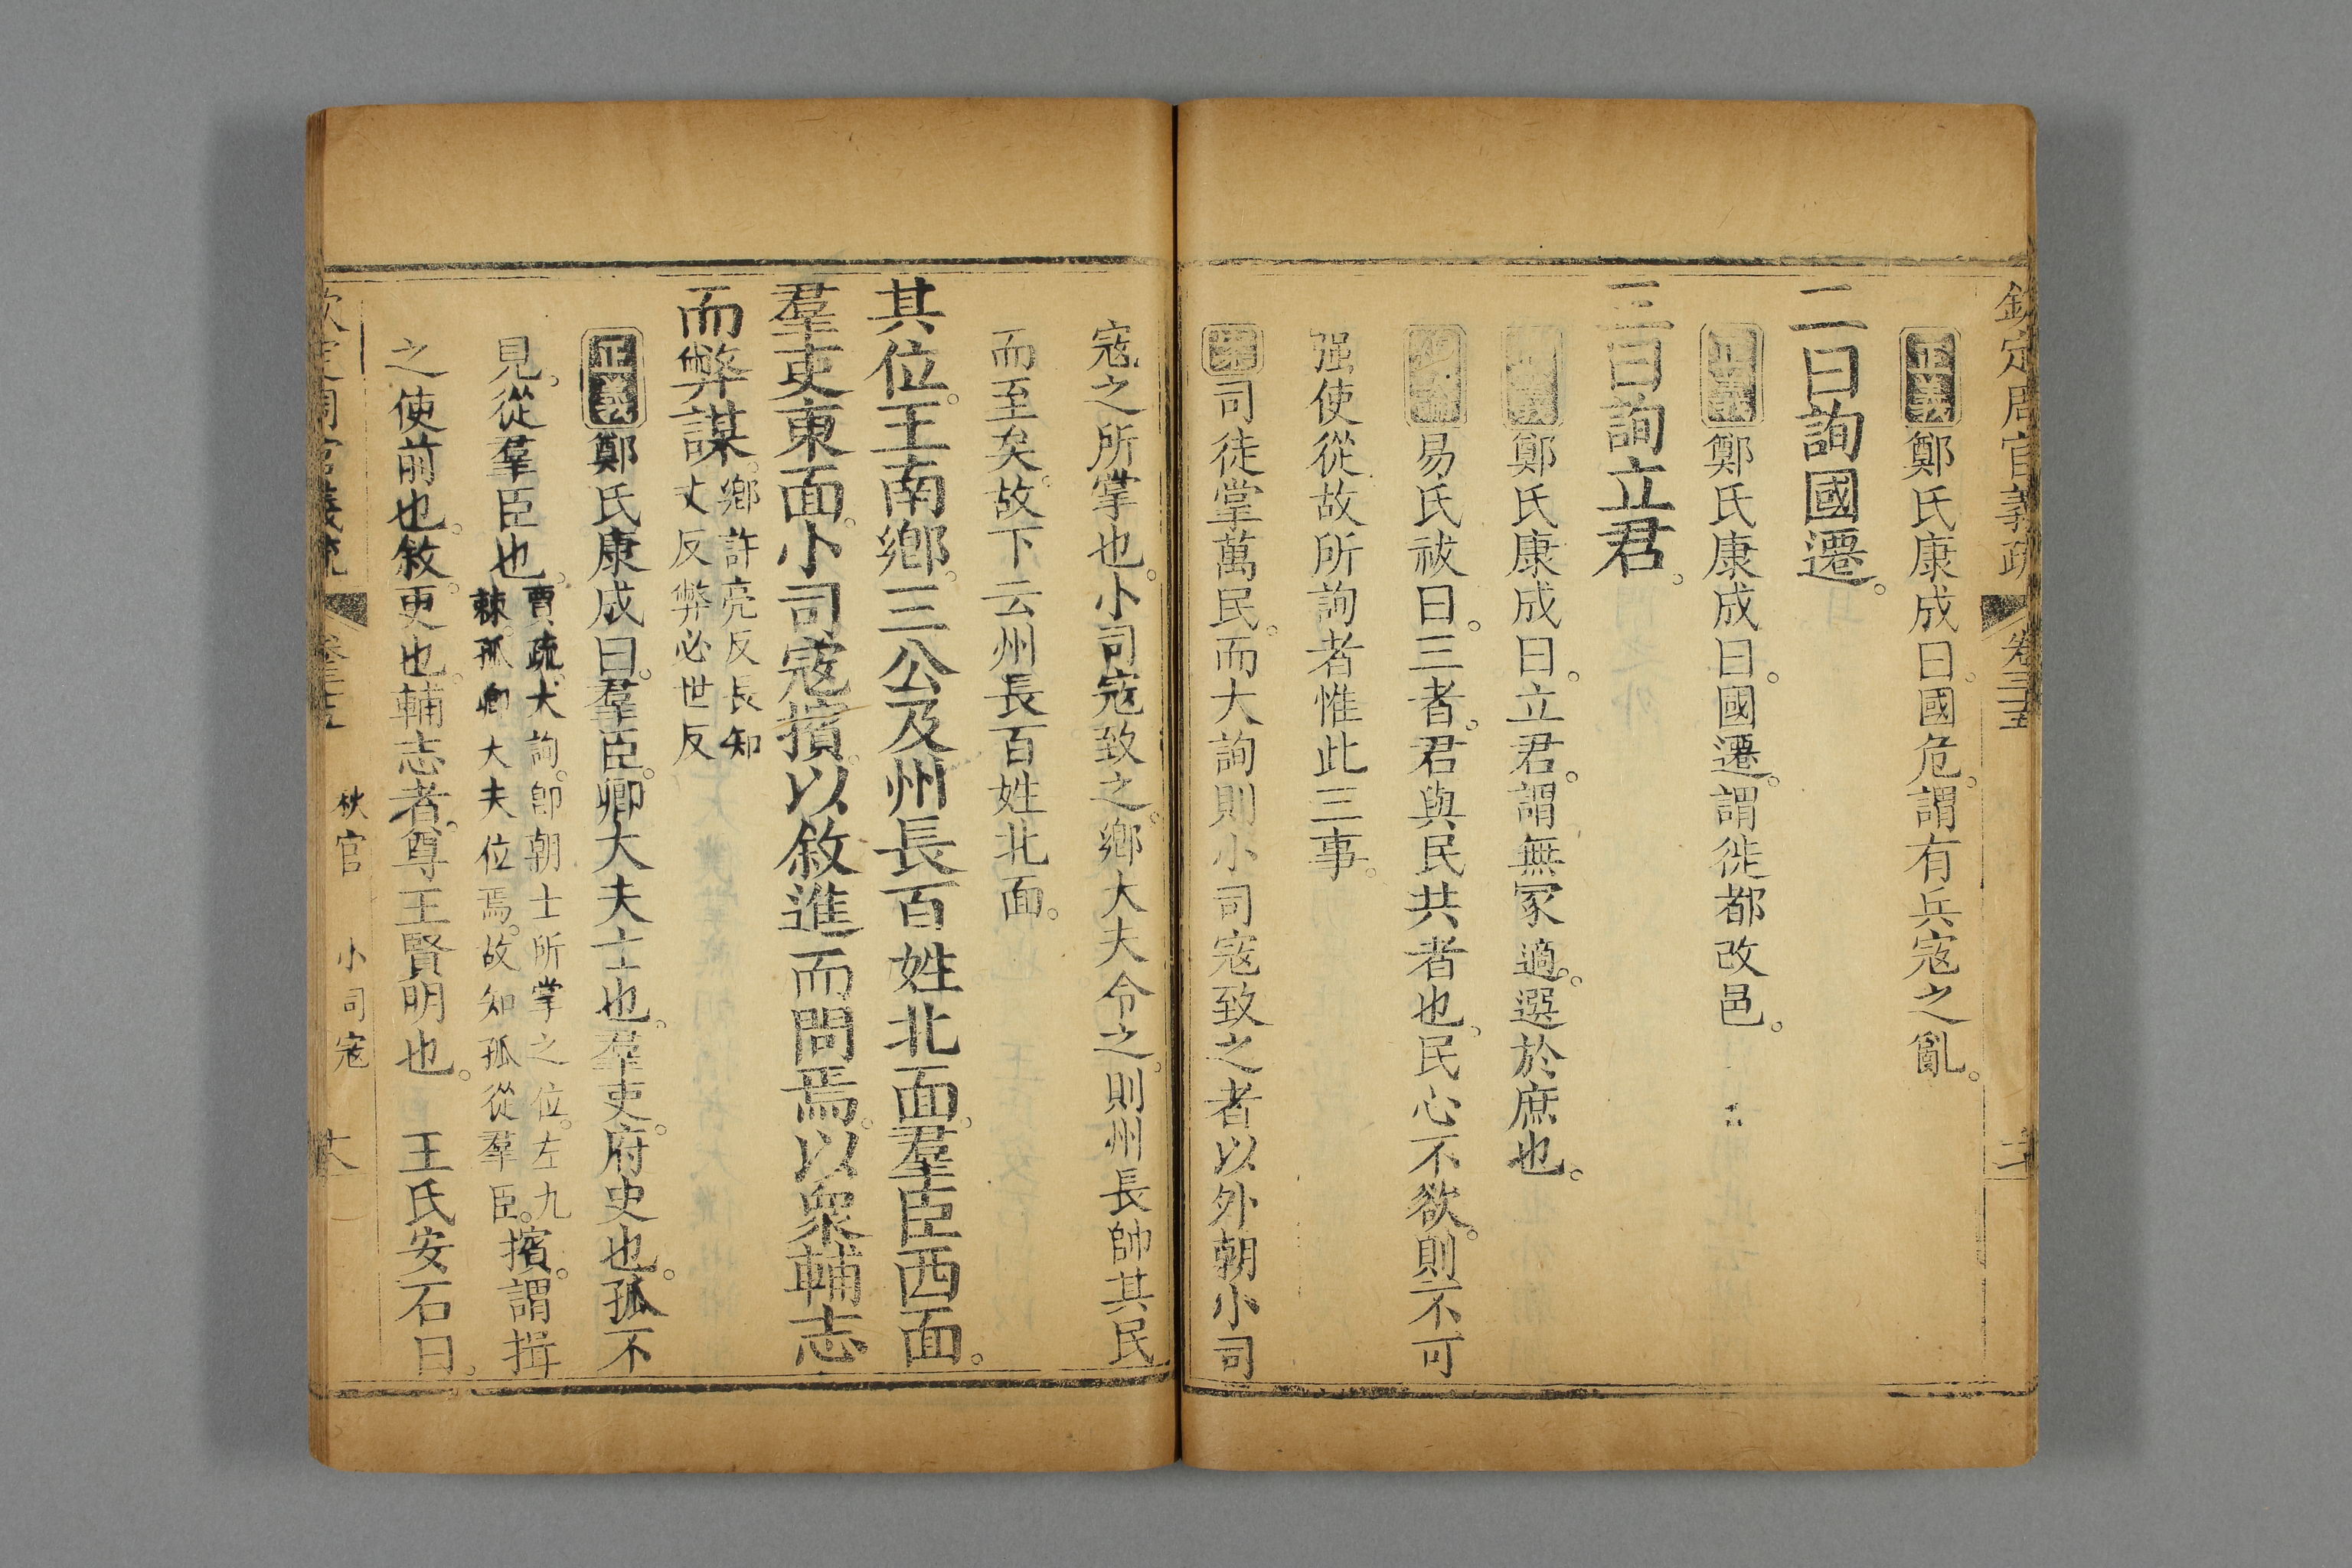 欽定周官義疏 卷三十五
正義鄭氏康成曰。國危。謂有兵寇之亂。
二曰詢國遷。
正義鄭氏康成曰。國遷。謂徙都改邑。
三曰詢立君。
正義鄭氏康成曰。立君。謂無冢適。選於庶也。
易氏祓曰。三者。君與民共者也。民心不欲。則不可
强使從。故所詢者惟此三事。
案司徒掌萬民。而大詢則小司寇致之者。以外朝小司
寇之所掌也。小司寇致之。鄉大夫令之。則州長帥其民
而至矣。故下云州長百姓北面。
其位。王南鄉。三公及州長百姓北面。羣臣西面。
羣吏東面。小司寇擯。以敘進而問焉。以衆輔志
而弊謀。鄉許亮反長知
丈反弊必世反
正義鄭氏康成曰。羣臣。卿大夫士也。羣吏。府史也。孤不
見。從羣臣也。賈疏。大詢。卽朝士所掌之位。左九
棘。孤卿大夫位焉。故知孤從羣臣。擯。謂揖
之使前也。敘。更也。輔志者。尊王賢明也。 王氏安石曰。
欽定周官義疏 卷三十五 秋官 小司寇